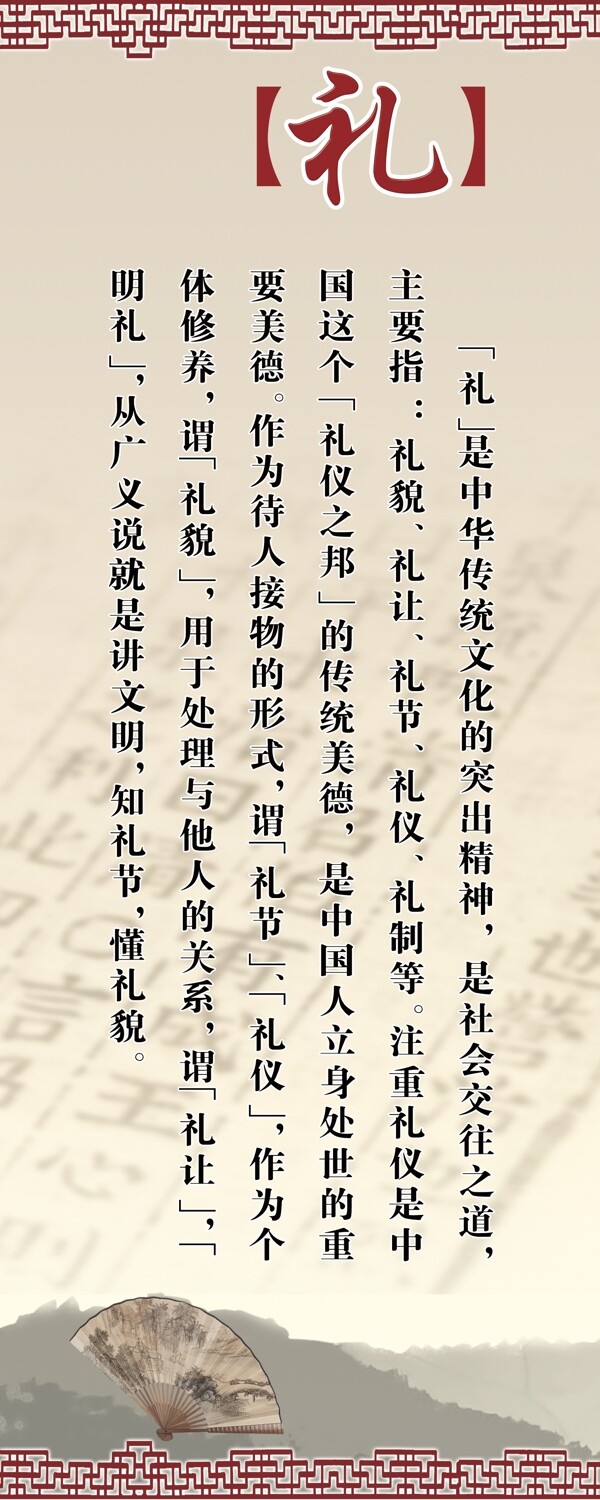 【礼】
「礼」是中华传统文化的突出精神，是社会交往之道，
主要指：礼貌、礼让、礼节、礼仪、礼制等。注重礼仪是中
国这个「礼仪之邦」的传统美德，是中国人立身处世的重
要美德。作为待人接物的形式，谓「礼节」、「礼仪」，作为个
体修养，谓「礼貌」，用于处理与他人的关系，谓「礼让」，「
明礼」，从广义说就是讲文明，知礼节，懂礼貌。